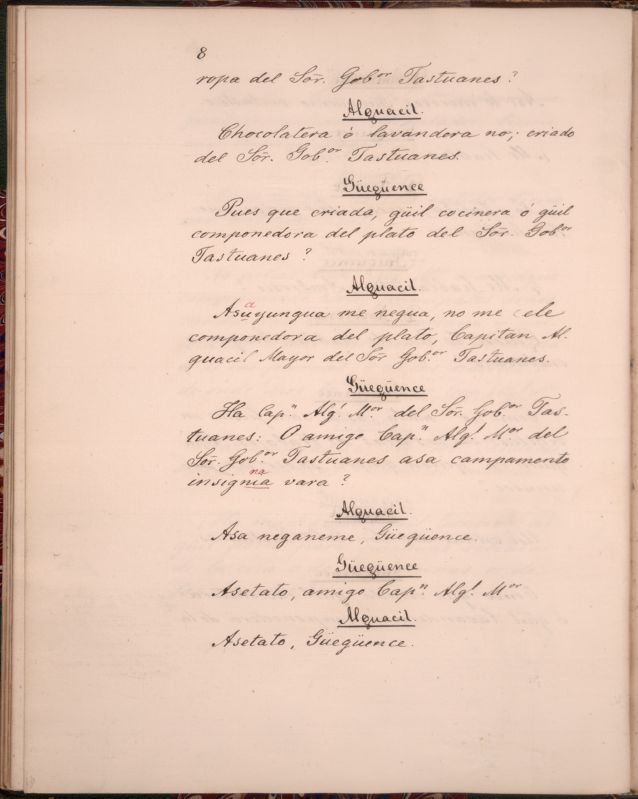 8
ropa del Sör. Gobor Tastuanes?
Alguacil.
Chocolatera ó lavandera no; criado
del Sör. Gobor Tastuanes.
Güegüence
Pues que criada, güil cocinera ó güil
componedora del plato del Sör. Gobor
Tastuanes?
Alguacil.
a
Asuyungua me negua, no me ele
componedora del plato, Capitan Al-
guacil Mayor del Sör Gobor Tastuanes.
Güegüence
Ha Capn. Algl. Mor del Sör. Gobor Tas-
tuanes: O amigo Capn. Algl. Mor del
Sör. Gobor Tastuanes asa campamento
na
insignia vara?
Alguacil.
Asa neganeme, Güegüence.
Güegüence
Asetato, amigo Capn. Algl. Mor
Alguacil.
Asetato, Güegüence.